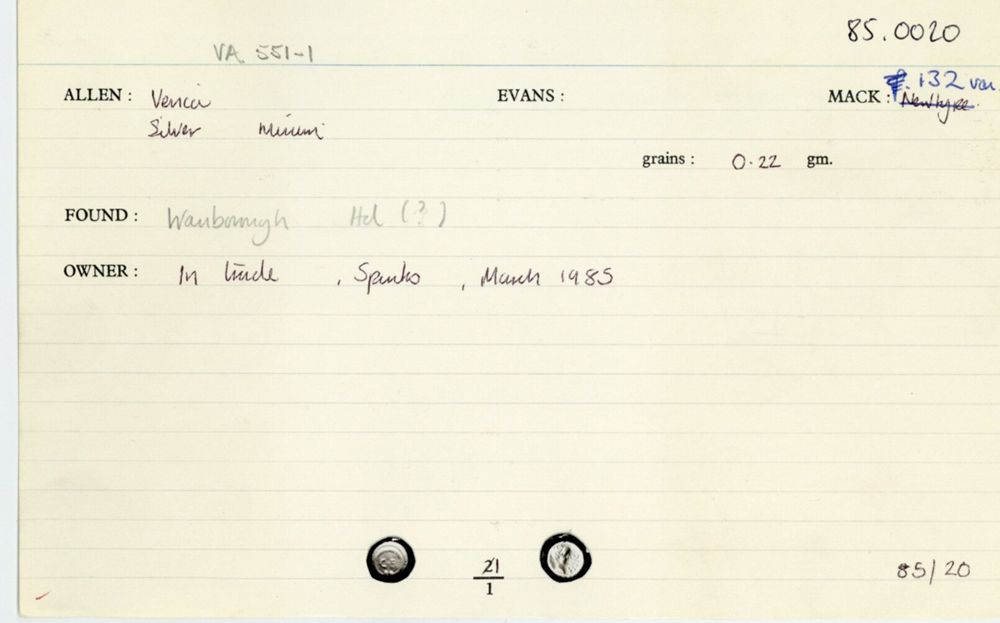 85.0020
VA 551-1
ALLEN : Verica EVANS : MACK : 132 var.
Silver Minim Newtype
grains : 0.22 gm.
FOUND : Wanborough Hd (?)
OWNER : In trade , Spinks , March 1985
21
1
85/20